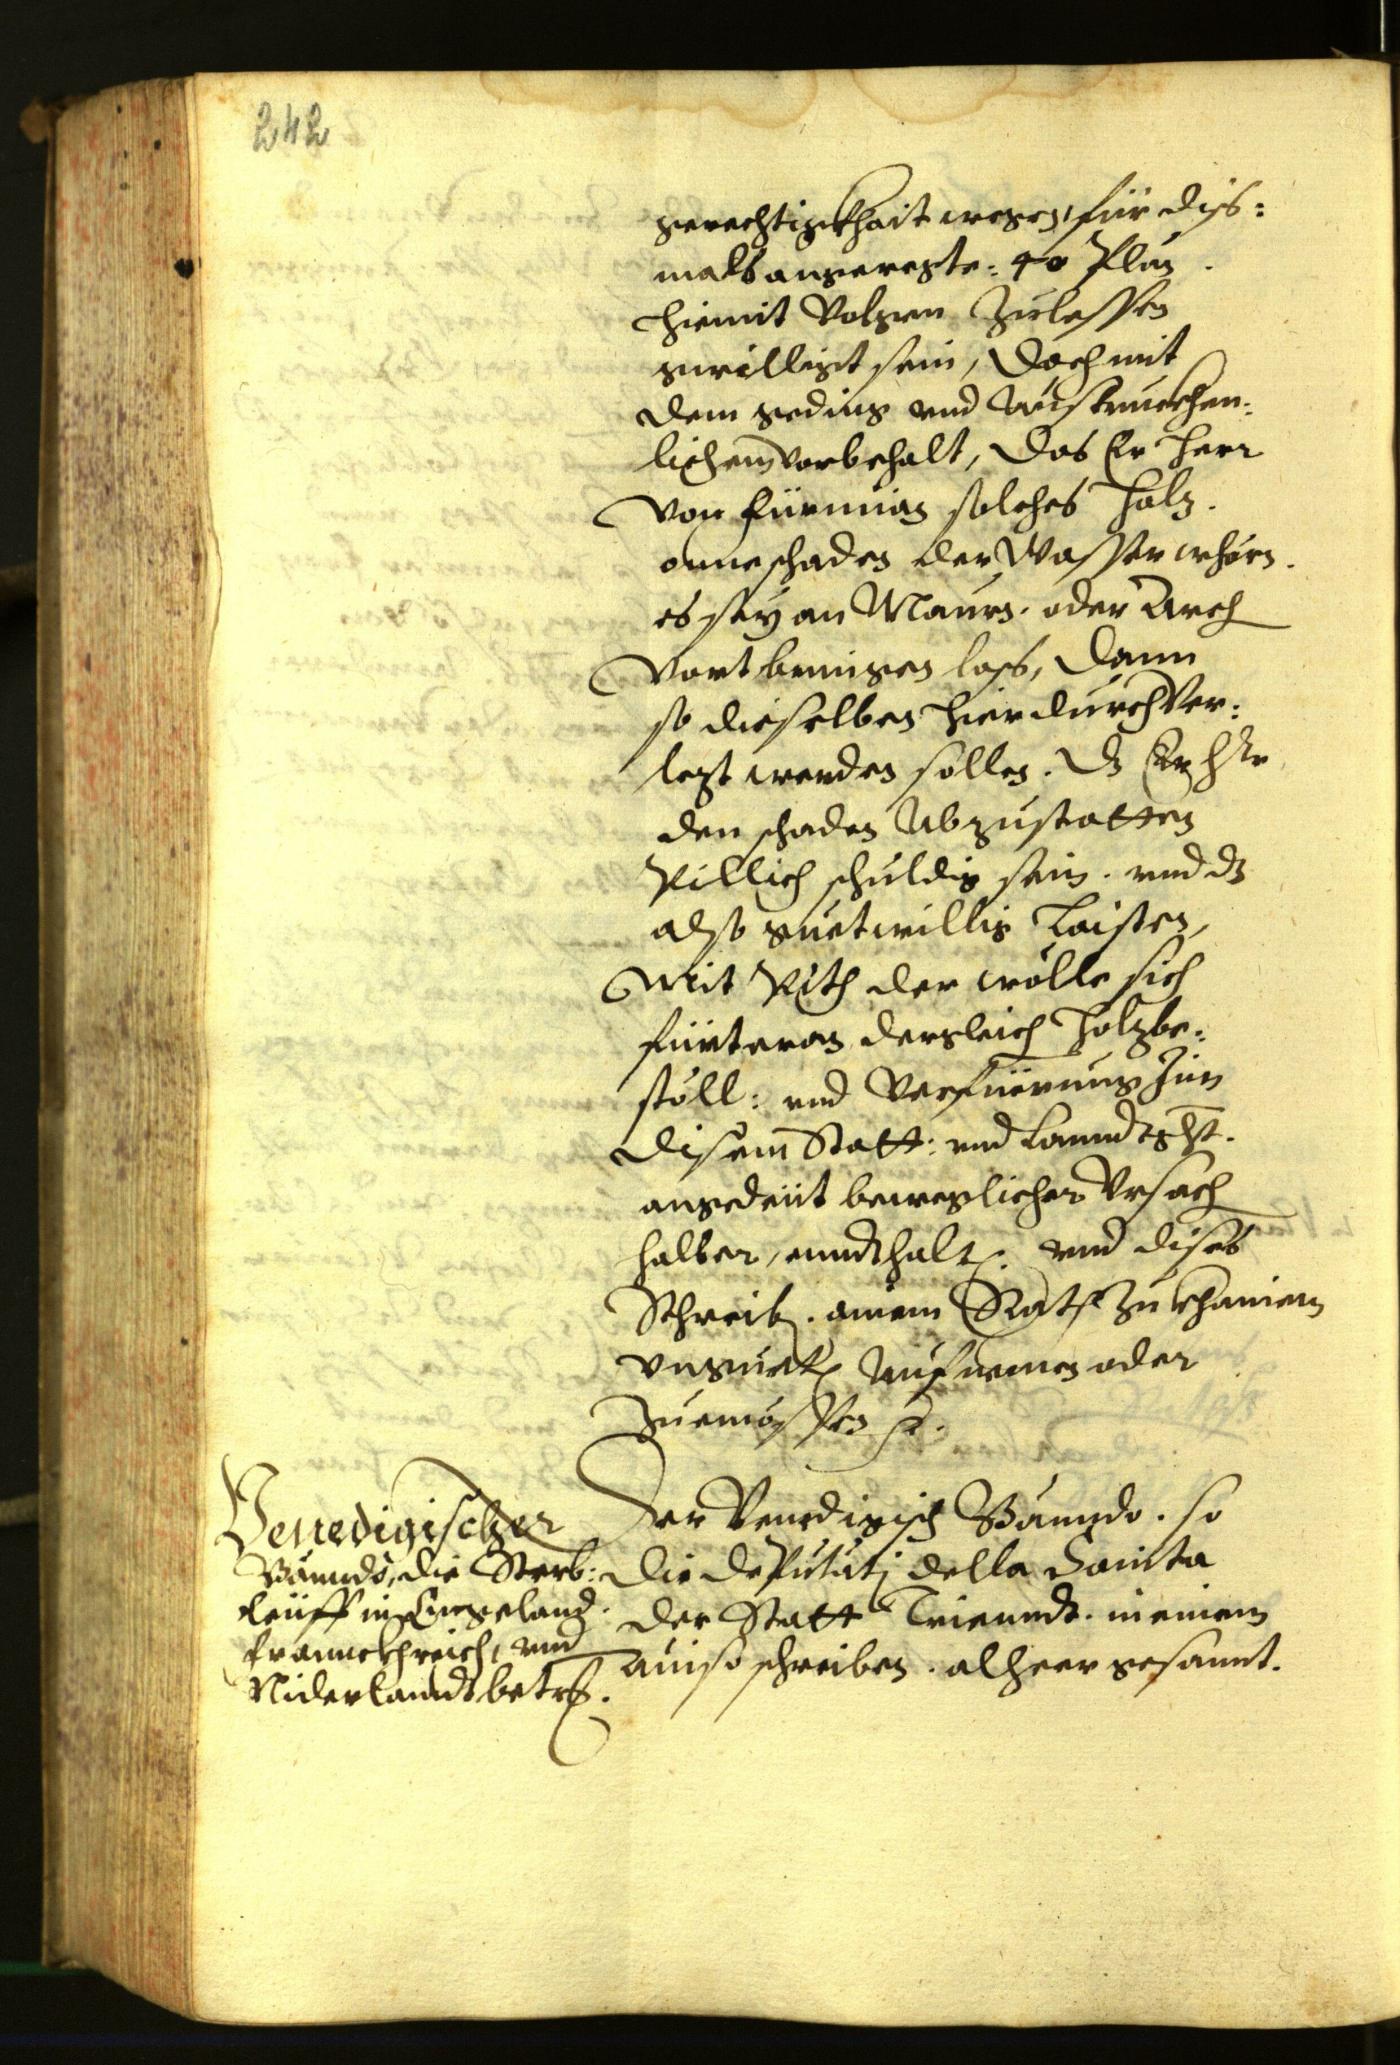 242
gerechtigkhait wegen, für diß:
mals angeregte: 40 Plöz.
hiemit Volgen Zulassen
gwilligt sein, doch mit
dem geding vnd Austruckhen:
lichem vorbehalt, das Er Herr
von Fürmian solches Holz.
onne schaden der Wasser
es sey an Maurn. oder Arch
Vort bringen lass, dann
so dieselben hierdurch Ver:
lezt werden sollen. dz Er Hr
den schaden Abzustatten
Pillich schuldig sein. vnd dz
also guetwillig Laisten,
Mit Pith der wölle sich
fürteran dergleich Holzbe:
stöll: vnd Verfüerung Jnn
disem Statt: vnd Lanndtgrt.
angedeüt beweglicher Vrsach
halber, enndthalt. vnd dises
Schreib. ainem Rath zu khainem
vnguetn Aufnemen oder
Zuemössen etc.
Venedigischer
Pänndo, die Sterb:
leüff in Enngeland.
Franckhreich, vnd
Niderlanndt betr.
Der Venedigisch Pänndo. so
die dePutati della Sanita
der Statt Trienndt. in einem
auiso schreiben. alheer gesannt.